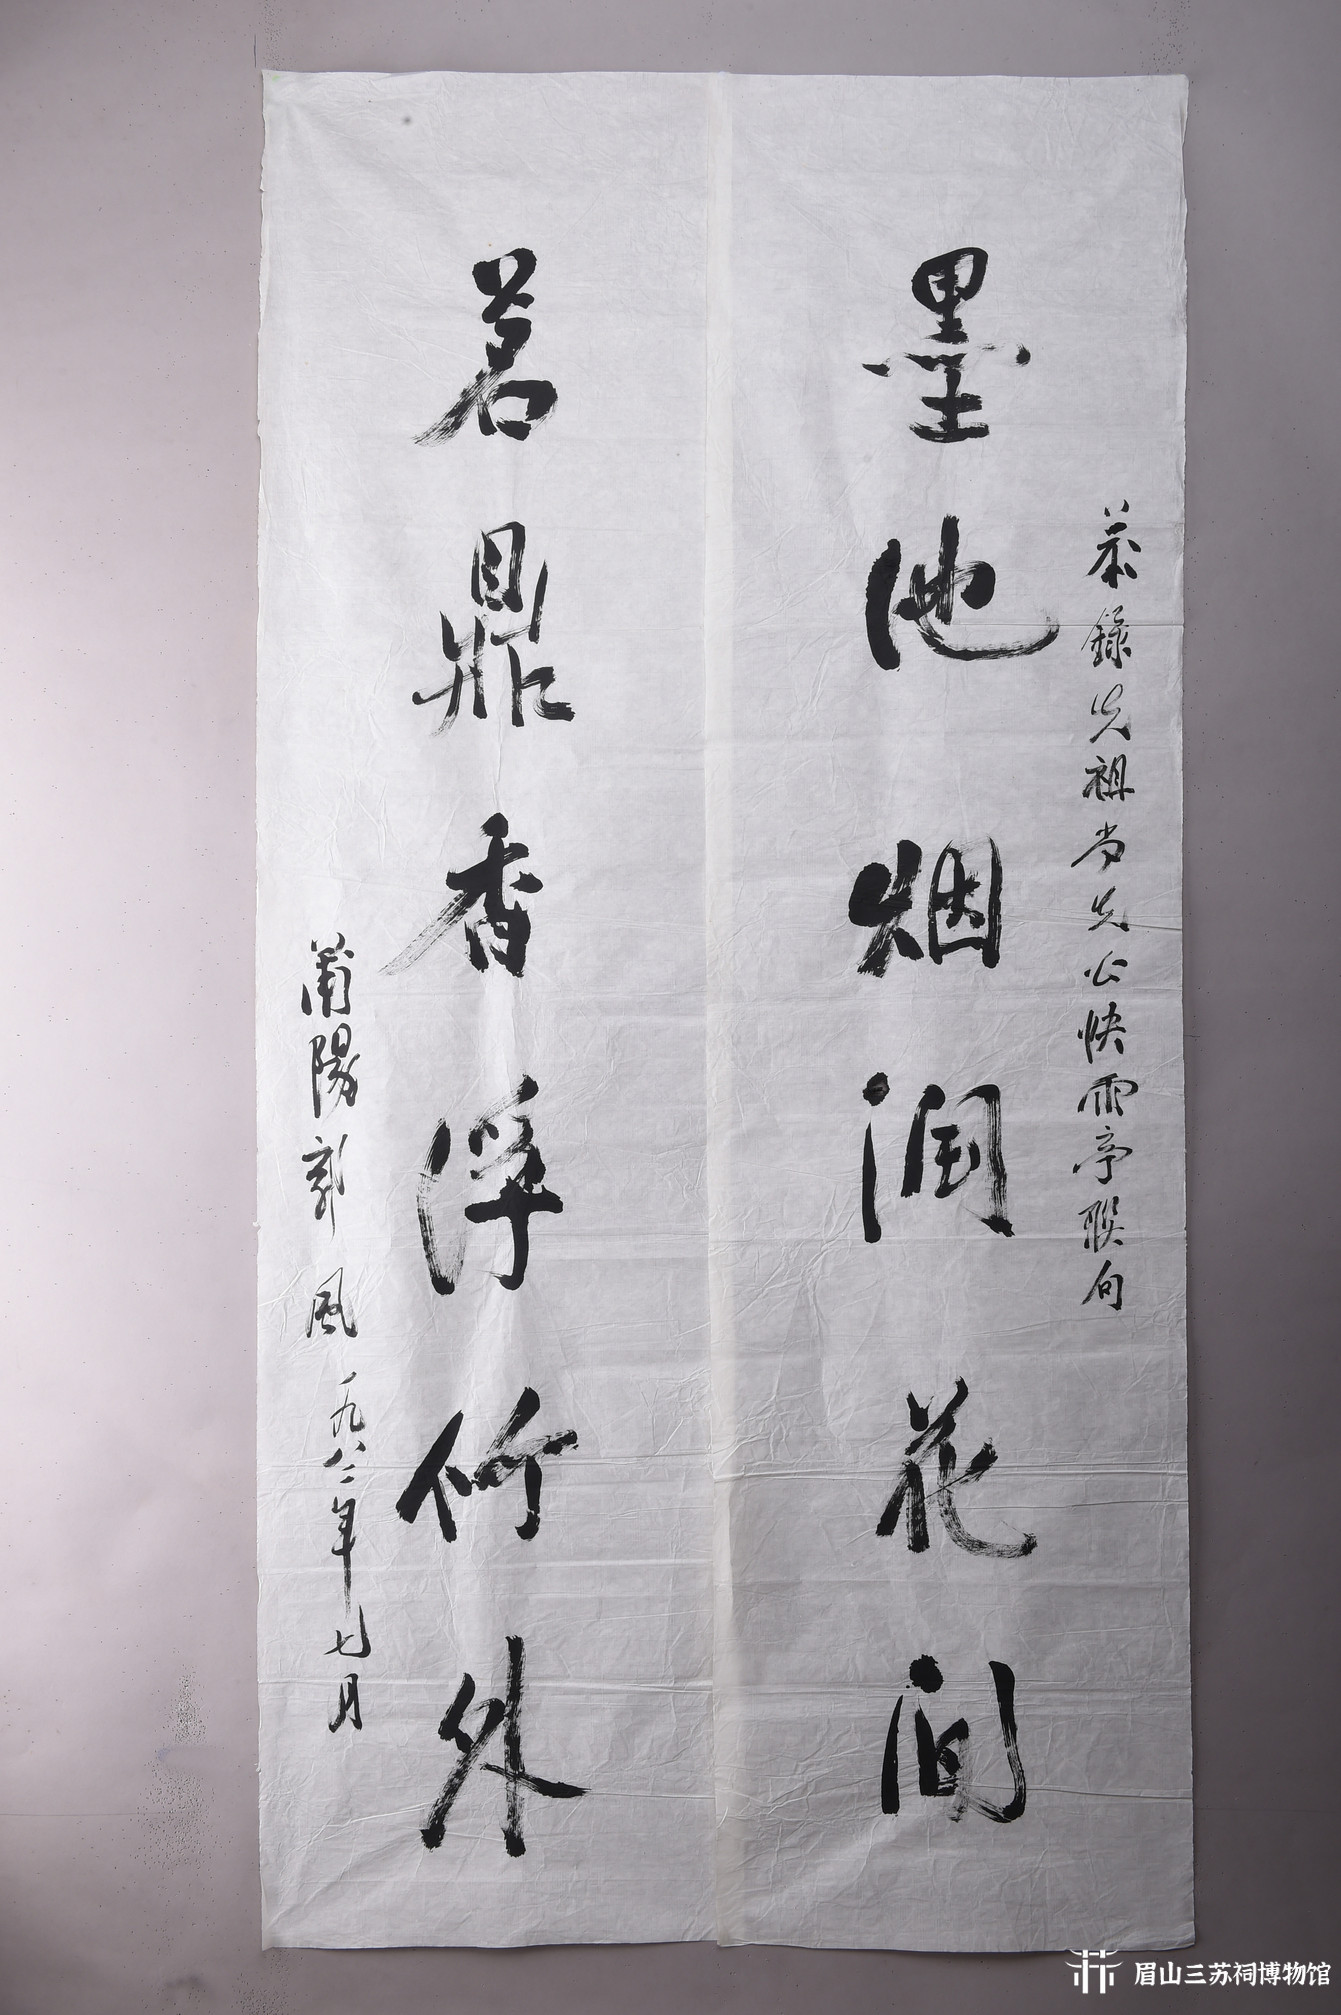 恭録先祖尚先公快雨亭聯句
墨池烟润花间
茗鼎香浮竹外
莆陽郭風一九八二年七月
眉山三苏祠博物馆